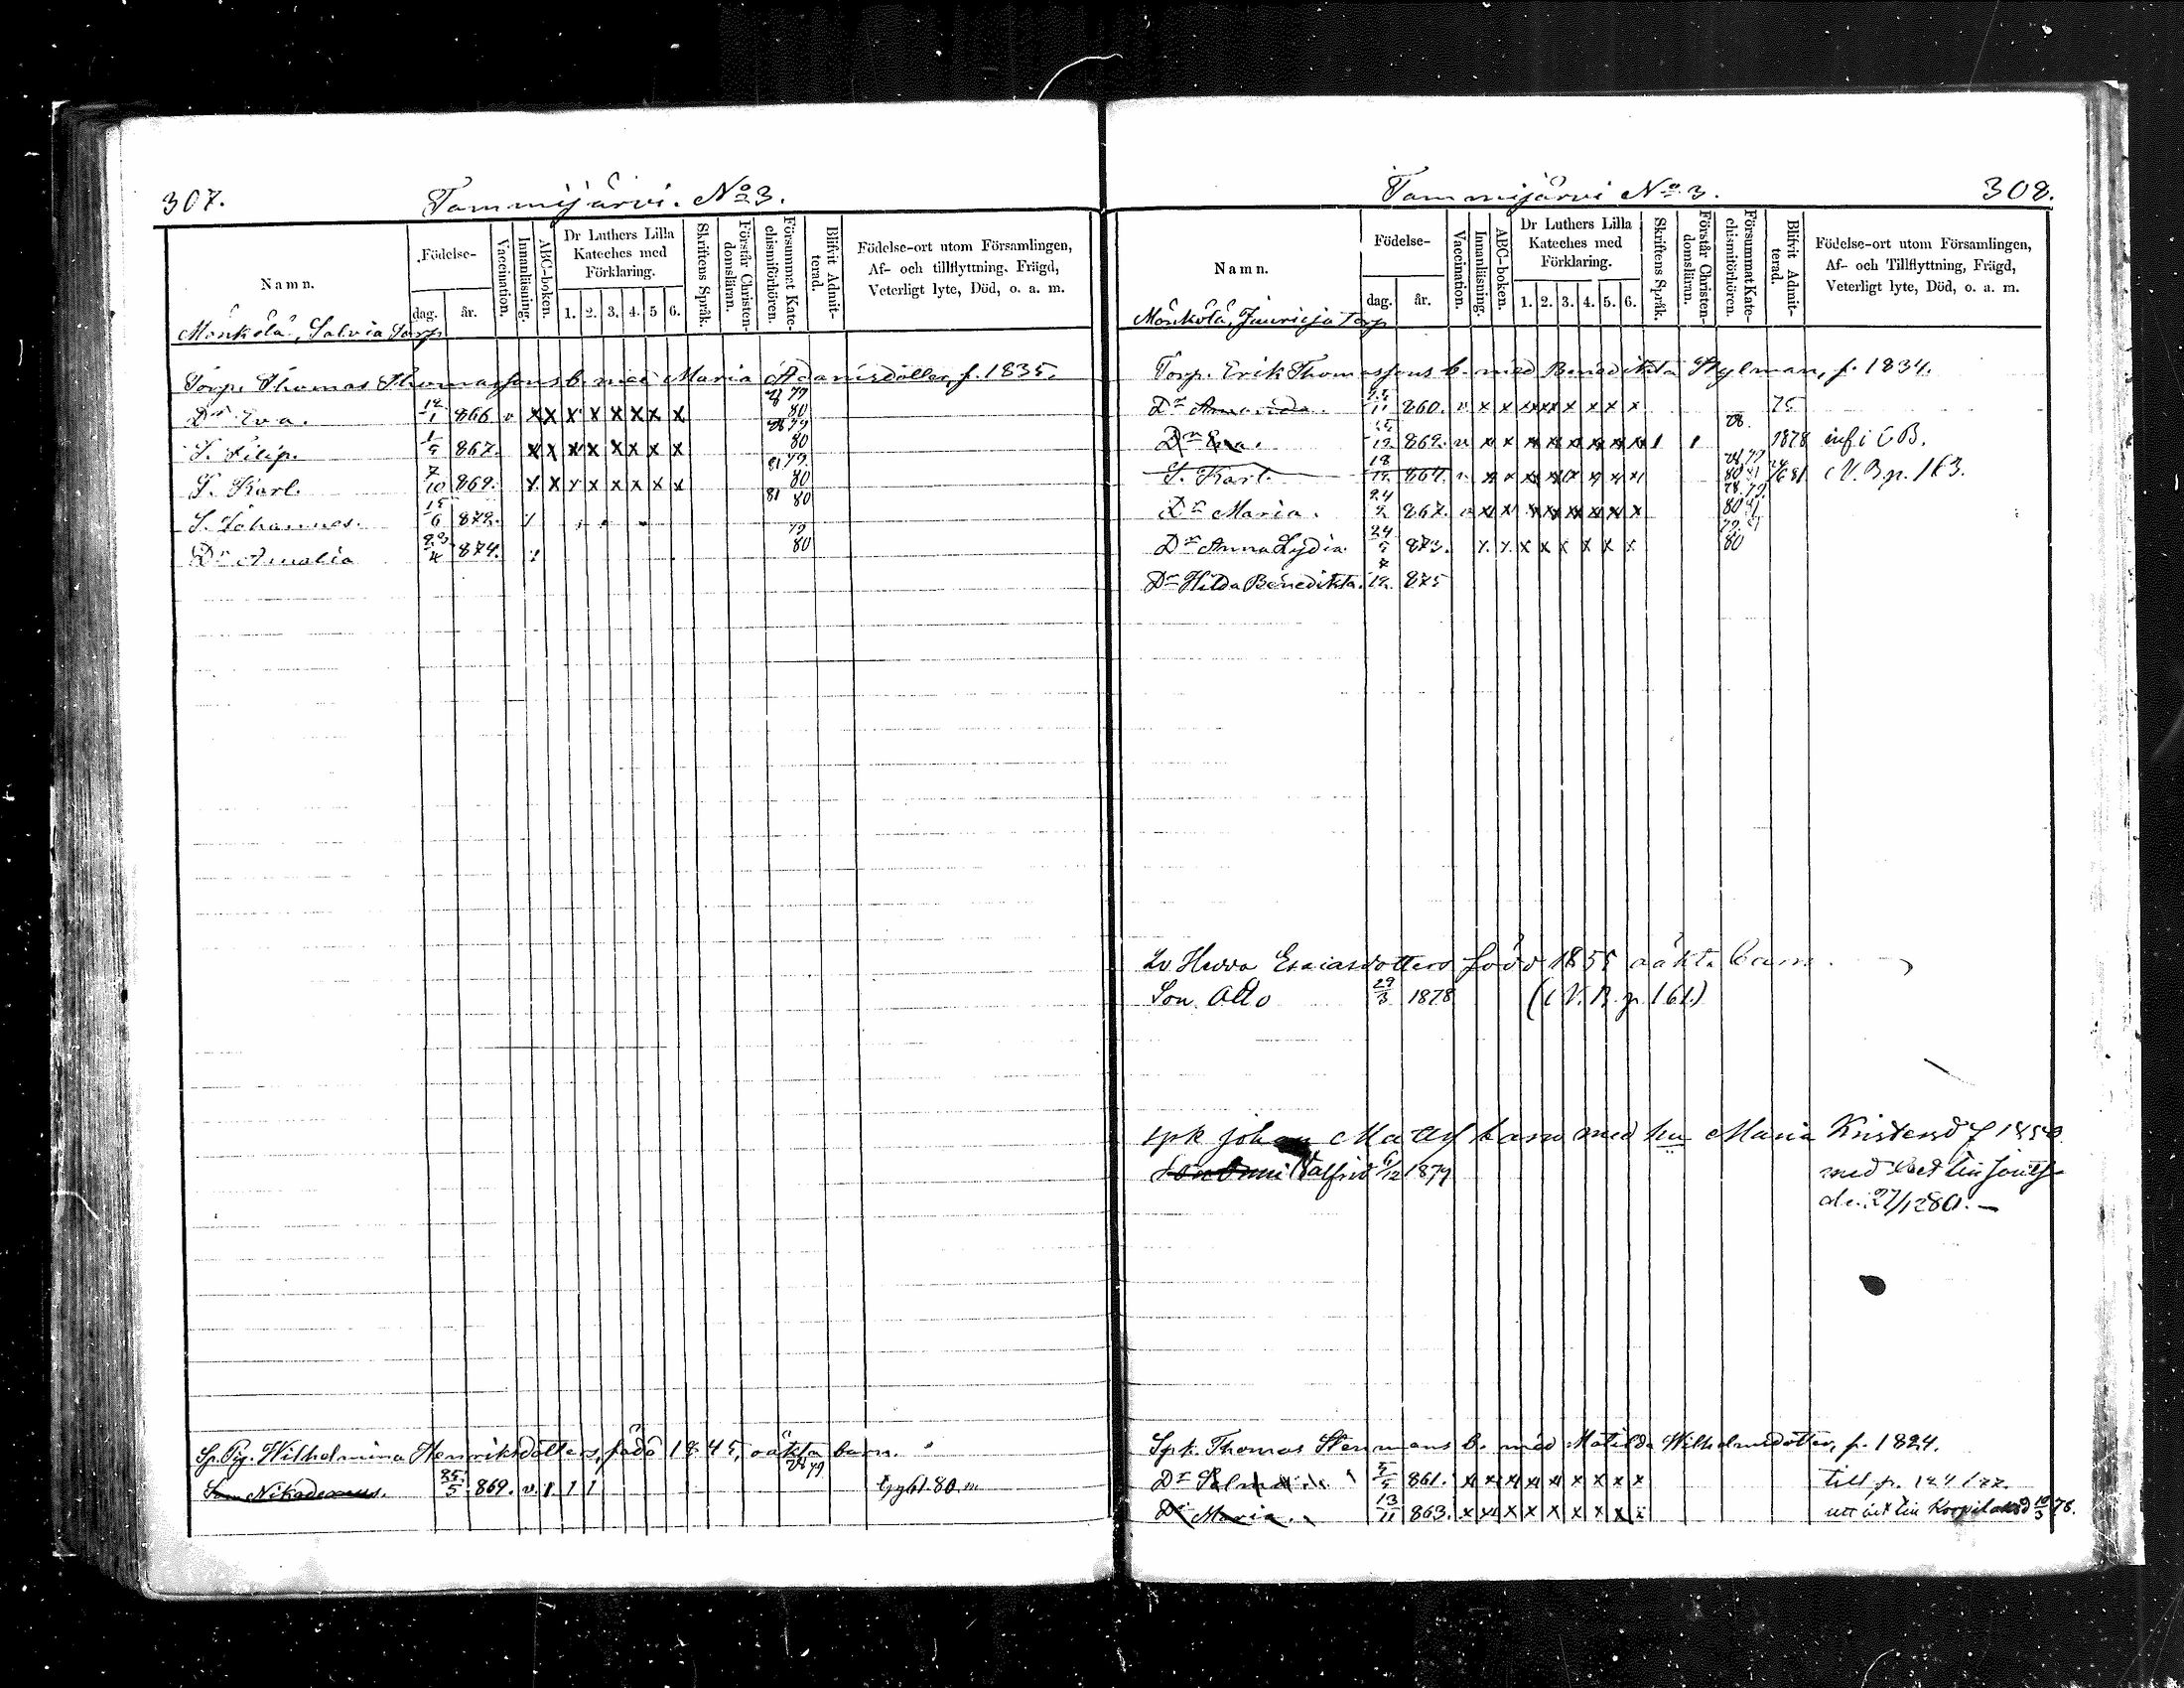 307.
Tammijärvi. No 3.
Namn.
Födelse-
dag.
år.
Vaccination.
Innanläsning.
ABC-boken.
Dr Luthers Lilla
Kateches med
Förklaring.
1. 2. 3. 4. 5 6.
Skriftens Språk.
Förstår Christen-
domsläran.
Försummat Kate-
chismiförhören.
Blifvit Admit-
terad.
Födelse-ort utom Församlingen,
Af- och tillflyttning. Frägd,
Veterligt lyte, Död, o. a. m.
Mönkölä, Salvia Torp
Torp. Thomas Thomassons b. med Maria Adamsdotter, f. 1835.
Dr Eva. 12/1 866 v x x x x x x x x 78 79 80
S. Filip. 1/5 867. x x x x x x x x 78 79 80
S. Karl. 7/10 869. x x x x x x x x 81 79. 80
S. Johannes. 15/6 872. 81 80
Dr Amalia 23/4 874. 79 80
Sp. Pig. Wilhelmina Henriksdotters, född 1845, oäkta barn.
Son Nikodemus. 25/5 869. v. 1 1 1 78 79
308.
Tammijärvi No 3.
Namn.
Födelse-
dag.
år.
Vaccination.
Innanläsning.
ABC-boken.
Dr Luthers Lilla
Kateches med
Förklaring.
1. 2. 3. 4. 5. 6.
Skriftens Språk.
Förstår Christen-
domsläran.
Försummat Kate-
chismiförhören.
Blifvit Admit-
terad.
Födelse-ort utom Församlingen,
Af- och Tillflyttning, Frägd,
Veterligt lyte, Död, o. a. m.
Mönkölä, Torp
Torp. Erik Thomassons b. med Benedikta Stylman, f. 1834.
Dr Amanda. 11 860. v x x x x x x x x 75
Dr Eva. 15/12 862. v x x x x x x x x 1 1 78. 1878 inf. i CB.
S. Karl. 18/12 864. v. x x x x x x x x 78 79 80 81 N. B. p. 163.
Dr Maria. 24/2 867. v x x x x x x x x 78. 79. 80 81
Dr Anna Lydia. 24/5 873. x x x x x x x x 79. 81 80
Dr Hilda Benedikta. 7/12. 875
Lö Hedda Esaiasdotters född 1855 oäkt. barn
Son Otto 29/3 1878 (N. B. p 161.)
spk Johan Matts barn med hu Maria Kristersd f 1850
Son Valfrid 6/12 1879
med
27/12 80. —
Spk. Thomas Stenmans b. med Matilda Wilhelmsdotter, f. 1824.
Dr 5/5 861. x x x x x x x x x till p.
Dr Maria. 13/11 863. x x x x x x x x x 10/3 78.